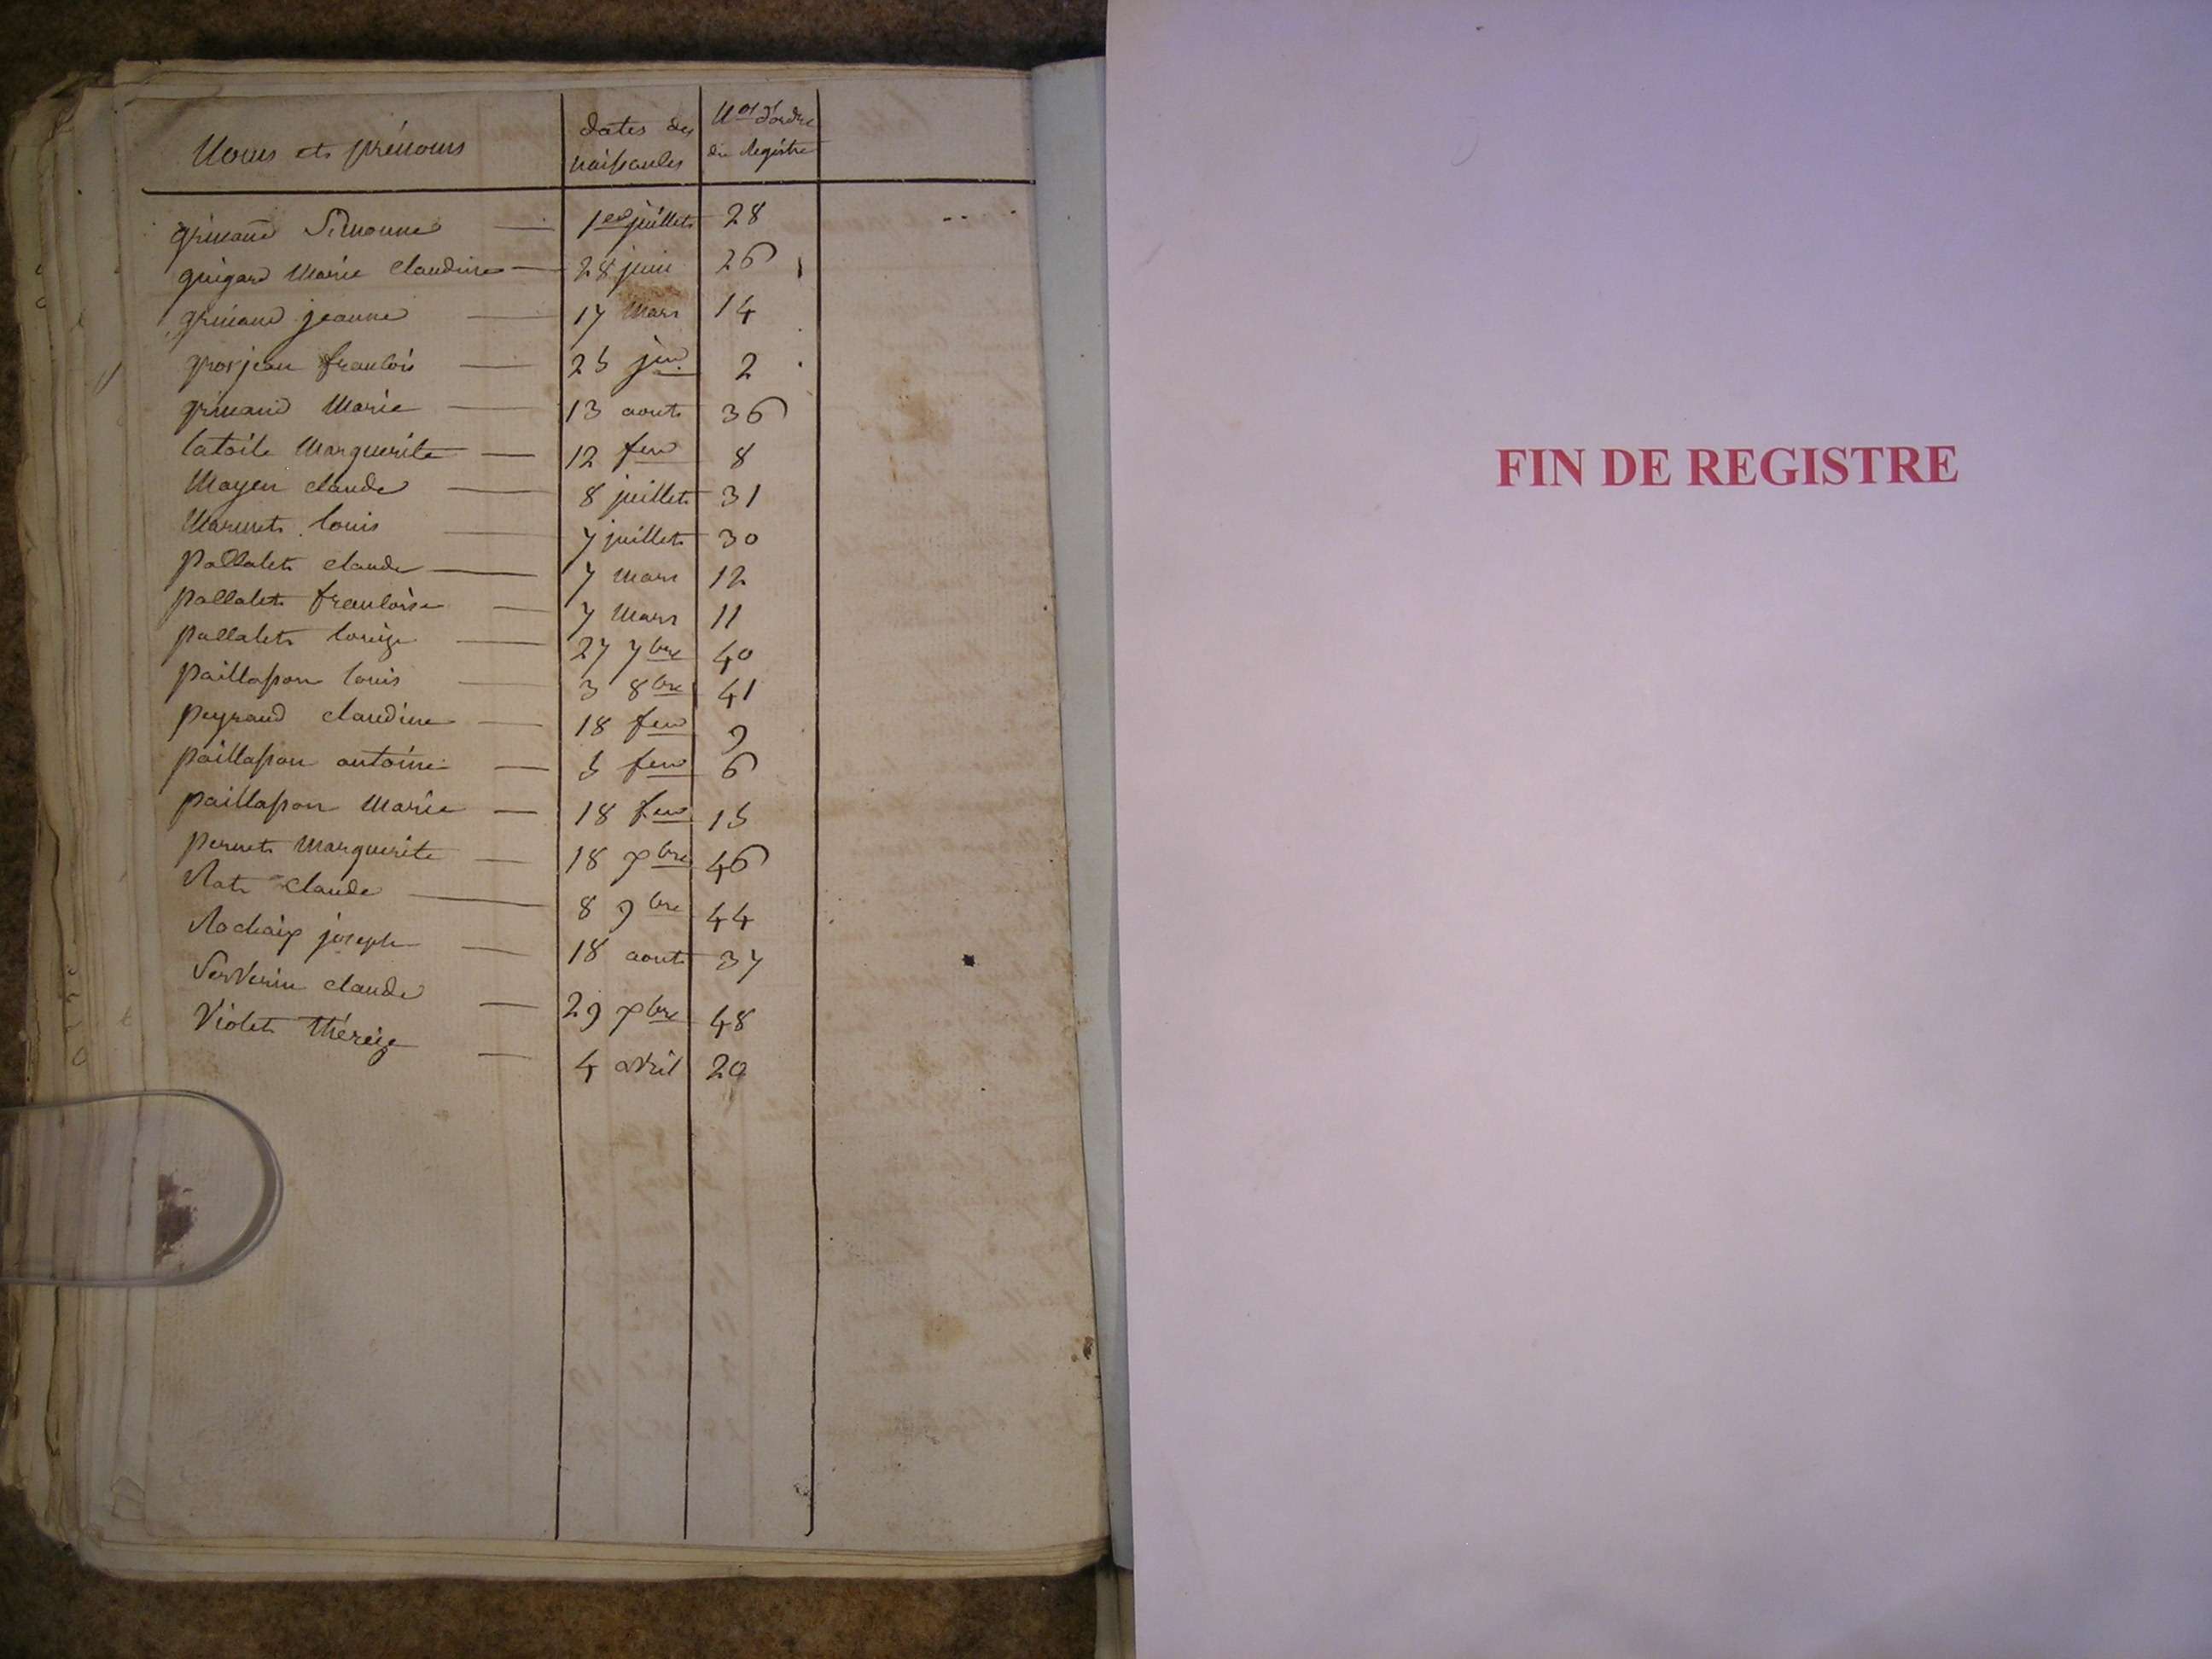 Noms et prénoms dates des naissances Nos d'ordre du Registre
grinand Simonne 1er juillet 28
guigard Marie Claudine 28 juin 26
grinand jeanne 17 Mars 14
grosjean françois 25 jer 2
grinand Marie 13 aout 36
latoile Marguerite 12 fer 8
Moyen claude 8 juillet 31
Marmet louis 7 juillet 30
pallatet claude 7 Mars 12
pallatet françoise 7 Mars 11
pallatet louize 27 7bre 40
paillasson louis 3 8bre 41
peyraud claudine 18 fer 9
paillasson antoine 5 fer 6
paillasson Marie 18 fer 15
pernet Marguerite 18 xbre 46
Rat claude 8 9bre 44
Rochaix joseph 18 aout 37
Serverin claude 29 xbre 48
Violet thérèze 4 avril 20
FIN DE REGISTRE